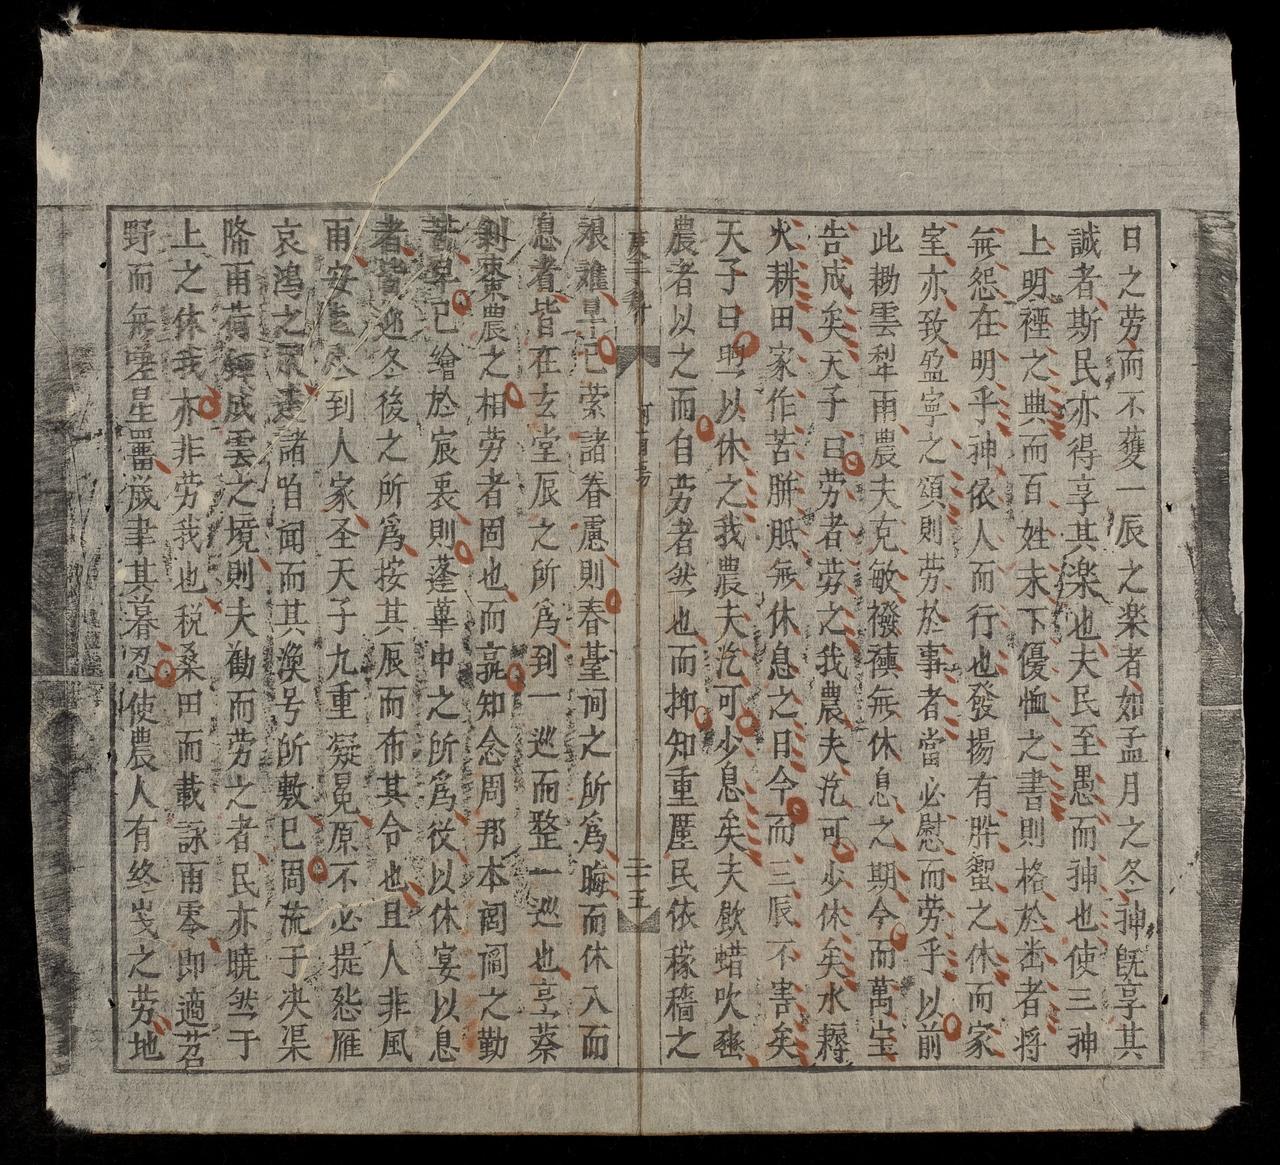 日之劳而不獲一辰之楽者如孟月之冬神既享其
誠者斯民亦得享其楽也夫民至愚而神也使三神
上明禋之典而百姓未下優恤之書則格於畨者将
無怨在明乎神依人而行也發揚有肸蠁之休而家
室亦致盈寧之頌則劳於事者當必慰而劳乎以前
此耡雲犁雨農夫克敏襏襫無休息之期今而萬宝
告成矣天子曰劳者劳之我農夫汔可少休矣水耨
火耕田家作苦胼胝無休息之日今而三辰不害矣
天子曰喣以休之我農夫汔可少息矣夫飲蜡吹豳
農者以之而自劳者然也而抑知重厪民依稼穡之
艰難早已萦諸眷慮則春䑓祠之所為晦而休入而
息者皆在玄堂辰之所為到一巡而整一巡也烹葵
剝棗農之相劳者固也而孰知念周邦本閭阎之勤
苦早已繪於宸衷則蓬蓽中之所為役以休宴以息
者皆巡冬後之所為按其辰而布其令也且人非風
雨安到人家圣天子九重凝冕原不必提愁雁
哀鴻之諸咱闻而其渙号所敷已周流于泱渠
降雨荷成雲之境則夫勸而劳之者民亦曉然于
上之休我亦非劳我也税桑田而載詠雨零即適苕
野而無寒星畱嵗聿其暮忍使農人有终嵗之劳地
二十五